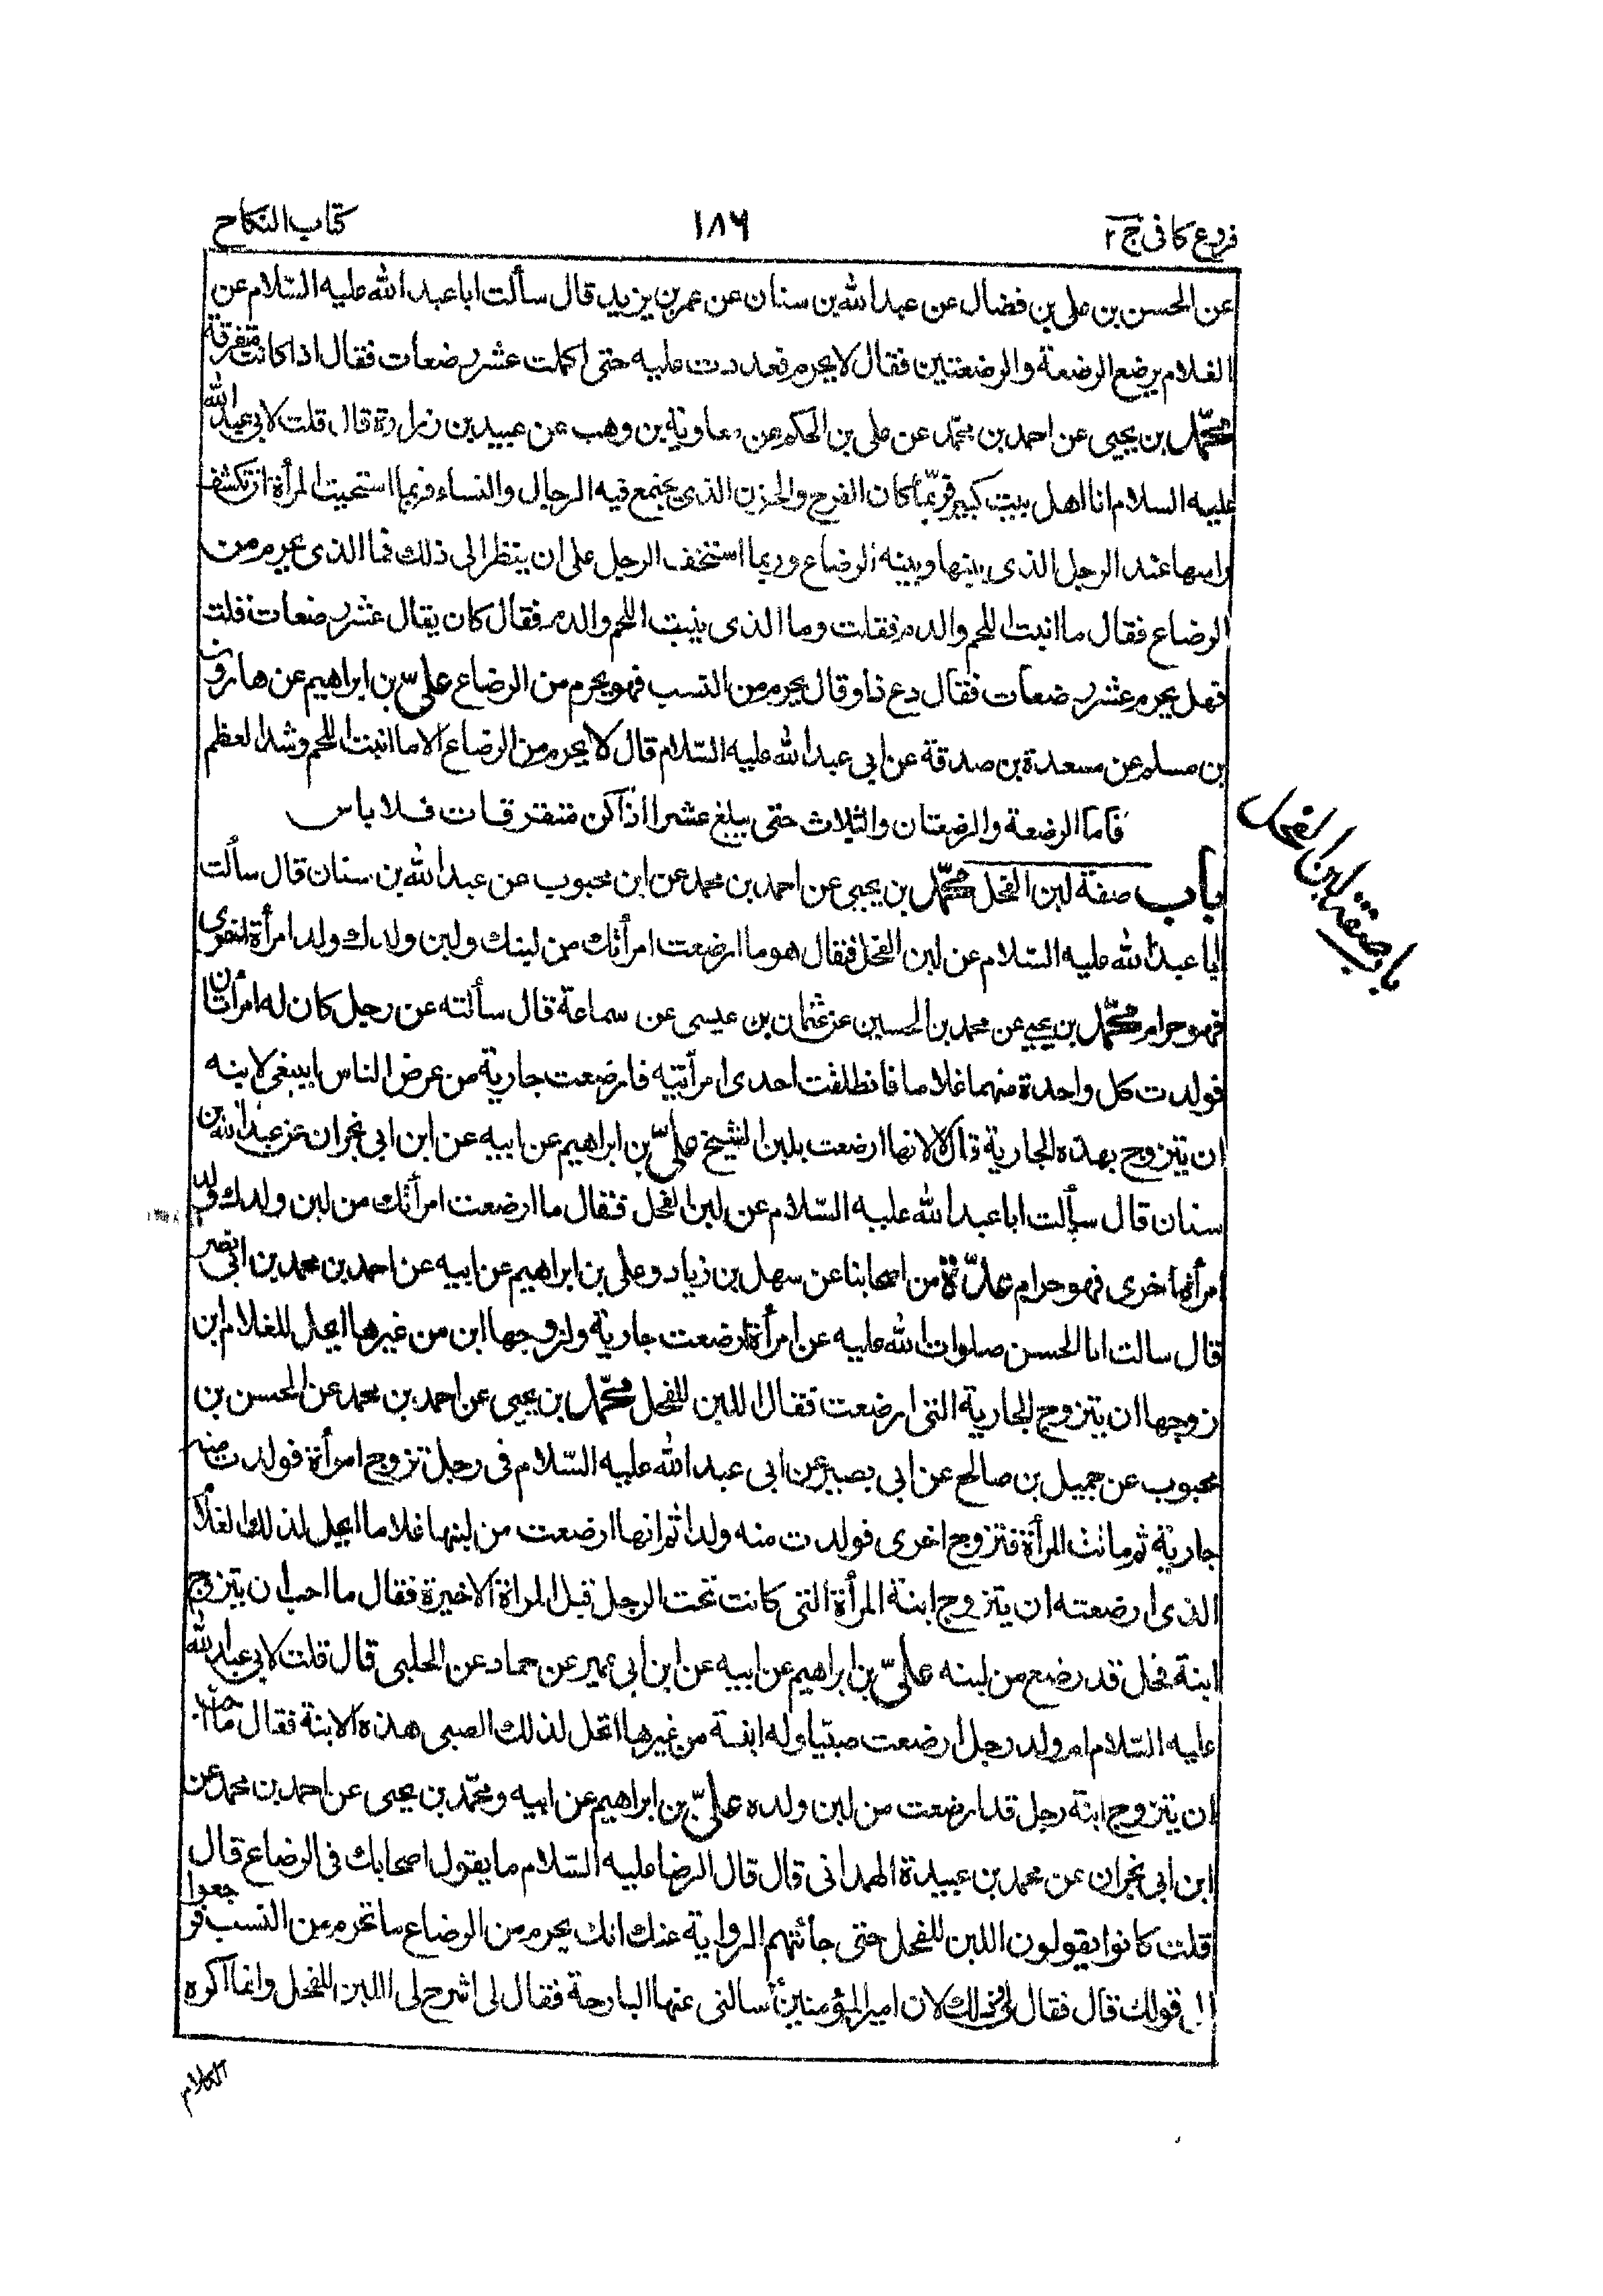 فروع كافى ج ٢
١٨٦
كتاب النكاح
عن الحسن بن على بن فضال عن عبد الله بن سنان عن عمر بن يزيد قال سألت ابا عبد الله عليه السّلام عن
الغلام يرضع الرضعة والرضعتين فقال لا يحرم فعددت عليه حتى اكملت عشر رضعات فقال اذا كانت متفرقة
محمّد بن يحيى عن احمد بن محمّد عن على بن الحكم عن معاوية بن وهب عن عبيد بن زرارة قال قلت لابى عبد الله
عليه السلام انا اهل بيت كبير فربّما كان الفرح والحزن الذى يجتمع فيه الرجال والنساء فربما استحيت المرأة ان تكشف
راسها عند الرجل الذى بينها وبينه الرضاع وربما استخف الرجل على ان ينظر الى ذلك فما الذى يحرم من
الرضاع فقال ما انبت اللحم والدم فقلت وما الذى ينبت اللحم والدم فقال كان يقال عشر رضعات قلت
فهل يحرم عشر رضعات فقال دع ذا وقال يحرم من النسب فهو يحرم من الرضاع علىّ بن ابراهيم عن هارون
بن مسلم عن مسعدة بن صدقة عن ابى عبد الله عليه السّلام قال لا يحرم من الرضاع الا ما انبت اللحم وشد العظم
فاما الرضعة والرضعتان والثلاث حتى يبلغ عشرا اذا كن متفرقات فلا باس
باب صفة لبن الفحل محمّد بن يحيى عن احمد بن محمد عن ابن محبوب عن عبد الله بن سنان قال سألت
ابا عبد الله عليه السّلام عن لبن الفحل فقال هو ما ارضعت امرأتك من لبنك ولبن ولدك ولد امرأة اخرى
فهو حرام محمّد بن يحيى عن محمد بن الحسين عن عثمان بن عيسى عن سماعة قال سألته عن رجل كان له امرأتان
فولدت كل واحدة منهما غلاما فانطلقت احدى امرأتيه فارضعت جارية من عرض الناس اينبغى لابنه
ان يتزوج بهذه الجارية قال لا لانها ارضعت بلبن الشيخ علىّ بن ابراهيم عن ابيه عن ابن ابى نجران عن عبد الله بن
سنان قال سألت ابا عبد الله عليه السّلام عن لبن الفحل فقال ما ارضعت امرأتك من لبن ولدك ولد
امرأة اخرى فهو حرام عدّة من اصحابنا عن سهل بن زياد وعلى بن ابراهيم عن ابيه عن احمد بن محمد بن ابى نصر
قال سالت ابا الحسن صلوات الله عليه عن امرأة ارضعت جارية ولزوجها ابن من غيرها ايحل للغلام ابن
زوجها ان يتزوج الجارية التى ارضعت فقال اللبن للفحل محمّد بن يحيى عن احمد بن محمد عن الحسن بن
محبوب عن جميل بن صالح عن ابى بصير عن ابى عبد الله عليه السّلام فى رجل تزوج امرأة فولدت منه
جارية ثم ماتت المرأة فتزوج اخرى فولدت منه ولدا ثم انها ارضعت من لبنها غلاما ايحل لذلك الغلام
الذى ارضعته ان يتزوج ابنة المرأة التى كانت تحت الرجل قبل المراة الاخيرة فقال ما احب ان يتزوج
ابنة فحل قد رضع من لبنه علىّ بن ابراهيم عن ابيه عن ابن ابى عمير عن حماد عن الحلبى قال قلت لابى عبد الله
عليه السّلام ام ولد رجل ارضعت صبيّا وله ابنة من غيرها اتحل لذلك الصبى هذه الابنة فقال ما احب
ان يتزوج ابنة رجل قد ارضعت من لبن ولده علىّ بن ابراهيم عن ابيه ومحمّد بن يحيى عن احمد بن محمد عن
ابن ابى نجران عن محمد بن عبيدة الهمدانى قال قال الرضا عليه السّلام ما يقول اصحابك فى الرضاع قال
قلت كانوا يقولون اللبن للفحل حتى جائتهم الرواية عنك انك يحرم من الرضاع ما تحرم من النسب فرجعوا
الى قولك قال فقال لى وذلك لان امير المؤمنين سالنى عنها البارحة فقال لى اشرح لى اللبن للفحل وانما اكره
الكلام
باب صفة لبن الفحل